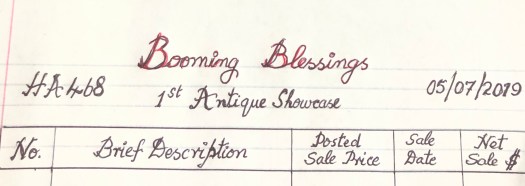 Booming Blessings
HA468 1st Antique Showcase 05/07/2019
No. Brief Description Posted Sale Price Sale Date Net Sale $